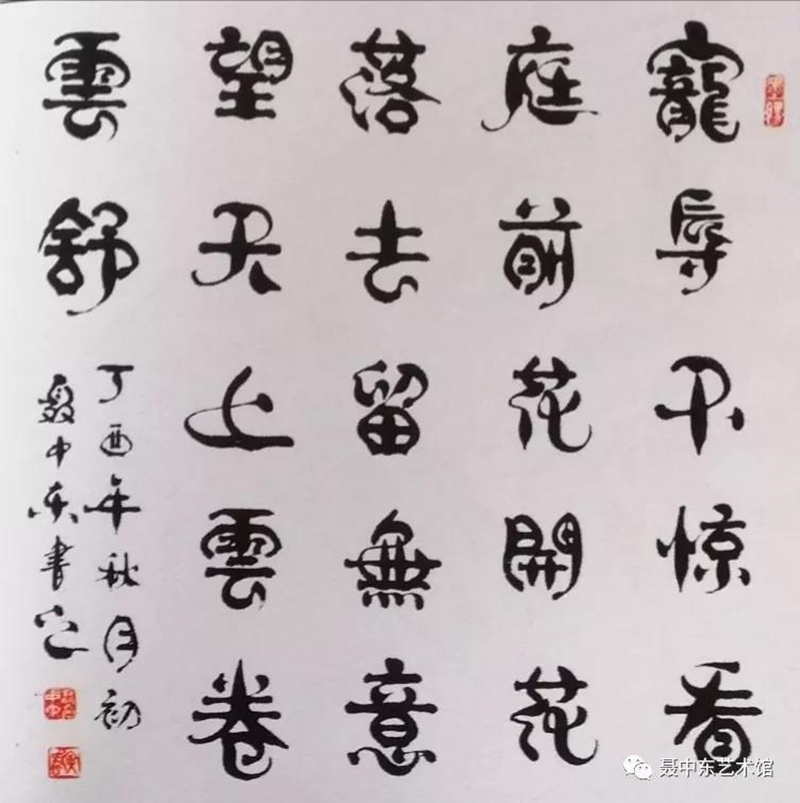 寵辱不惊看
庭前花開花
落去留無意
望天上雲卷
雲舒
丁酉年秋月初
聂中东書
聂中东艺术馆